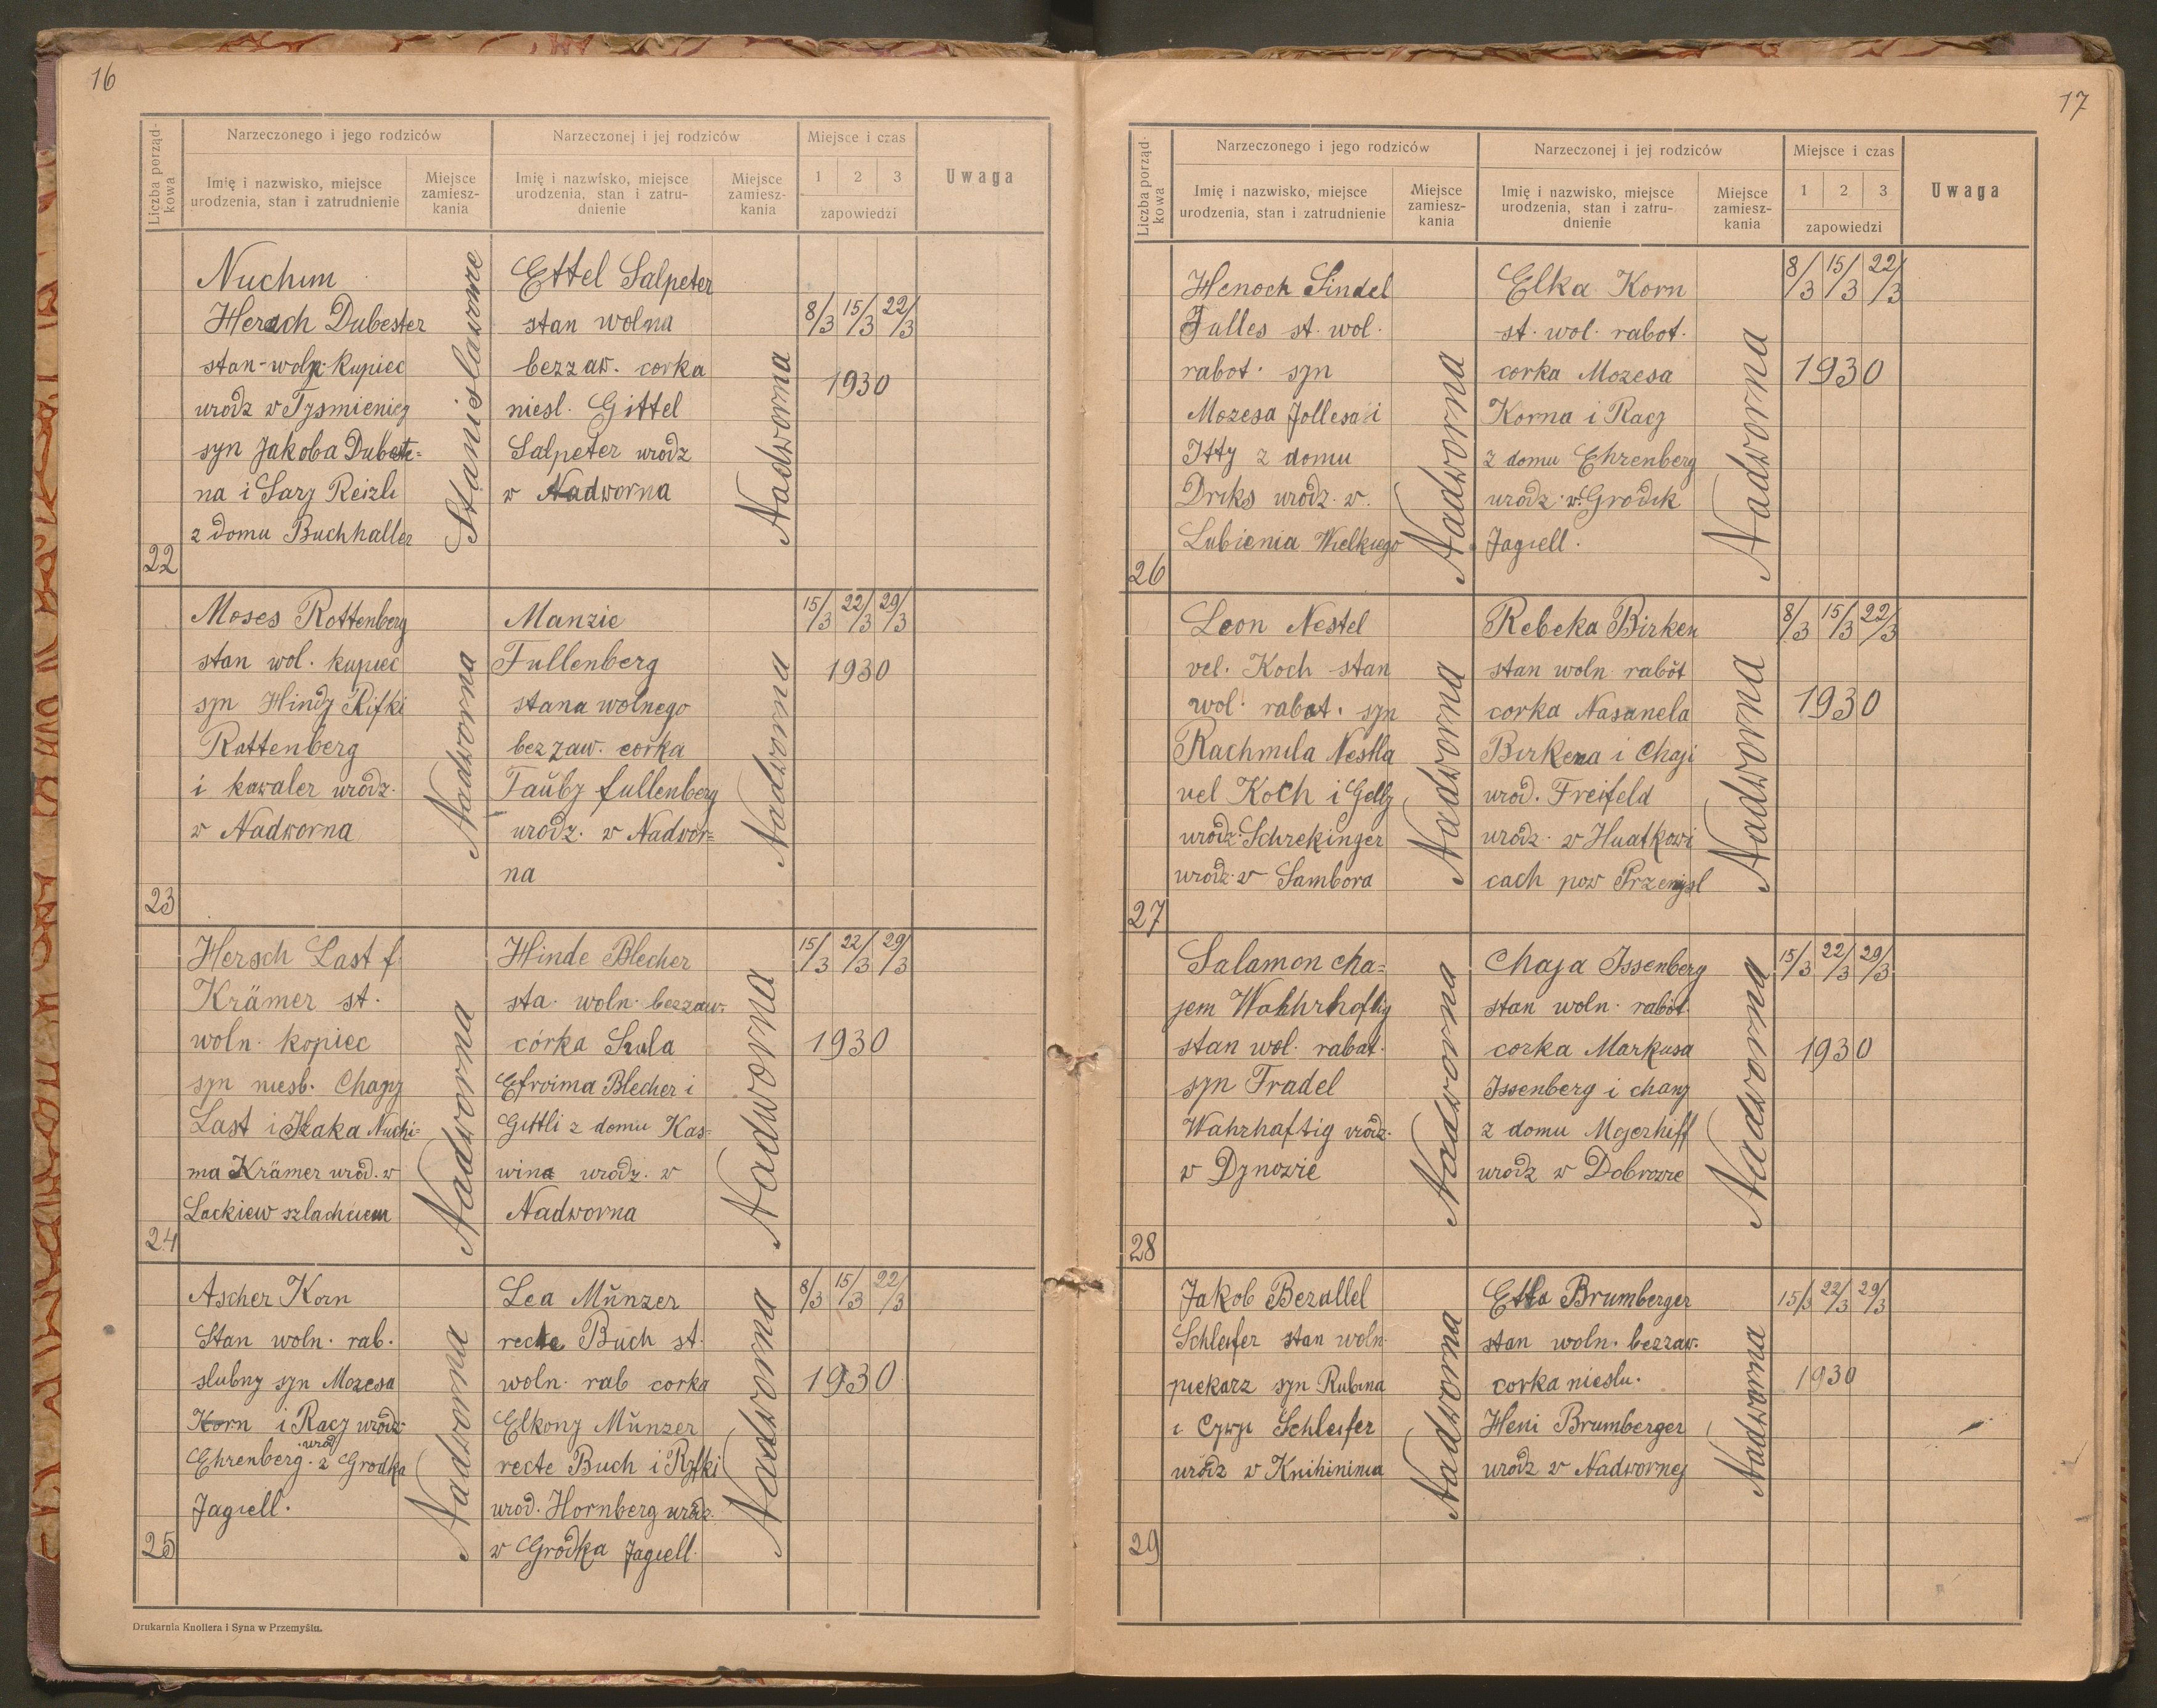 16
Liczba porząd-
kowa
Narzeczonego i jego rodziców
Narzeczonej i jej rodziców
Miejsce i czas
Uwaga
Imię i nazwisko, miejsce
urodzenia, stan i zatrudnienie
Miejsce
zamiesz-
kania
Imię i nazwisko, miejsce
urodzenia, stan i zatru-
dnienie
Miejsce
zamiesz-
kania
1 2 3
zapowiedzi
22
Nuchim
Hersch Dubester
stan-woln. kupiec
urodz w Tysmienicy
syn Jakoba Dubest-
na i Sary Reizli
z domu Buchhalter
Stanisławowe
Ettel Salpeter
stan wolna
bezzaw. corka
niesl. Gittel
Salpeter urodz
w Nadworna
Nadworna
8/3 15/3 22/3
1930
23
Moses Rottenberg
stan wol. kupiec
syn Hindy Rifki
Rottenberg
i kawaler urodz.
w Nadworna
Nadworna
Manzie
Fullenberg
stana wolnego
bezzaw. corka
Taŭby fullenberg
urodz. w Nadwor=
na
Nadworna
15/3 22/3 29/3
1930
24
Hersch Last f.
Krämer st.
woln. kopiec
syn niesb. Chajy
Last i Izaka Nuchi=
ma Krämer urod. w
Lackiew szlachciem
Nadworna
Hinde Blecher
sta. woln. bezzaw.
córka Srula
Efroima Blecher i
Gittli z domu Kas=
wina urodz. w
Nadworna
Nadworna
15/3 22/3 29/3
1930
25
Ascher Korn
Stan woln. rab.
slubny syn Mozesa
Korn i Racy urodz.
Ehrenberg. urod z Grodka
Jagiell.
Nadworna
Lea Mŭnzer
recte Buch st.
woln. rab corka
Elkony Mŭnzer
recte Buch i Ryfki
urod. Hornberg urodz.
w Grodka Jagiell.
Nadworna
8/3 15/3 22/3
1930
Drukarnia Knollera i Syna w Przemyślu.
17
Liczba porząd-
kowa
Narzeczonego i jego rodziców
Narzeczonej i jej rodziców
Miejsce i czas
Uwaga
Imię i nazwisko, miejsce
urodzenia, stan i zatrudnienie
Miejsce
zamiesz-
kania
Imię i nazwisko, miejsce
urodzenia, stan i zatru-
dnienie
Miejsce
zamiesz-
kania
1 2 3
zapowiedzi
26
Henoch Sindel
Julles st. wol.
rabot. syn
Mozesa Jollesa i
Itty z domu
Driks urodz. w.
Lubienia Wielkiego
Nadworna
Elka Korn
st. wol. rabot.
corka Mozesa
Korna i Racy
z domu Ehrenberg
urodz. w. Grodek
Jagiell.
Nadworna
8/3 15/3 22/3
1930
27
Leon Nestel
vel. Koch stan
wol. rabot. syn
Rachmila Nestla
vel Koch i Gelly
urodz. Schrekinger
urodz. w Sambora
Nadworna
Rebeka Birken
stan woln rabot
corka Nasanela
Birkena i Chaji
urod. Freifeld
urodz. w Huatkowi
cach pow Przemysl
Nadworna
8/3 15/3 22/3
1930
28
Salamon cha=
jem Wahhrhaftig
stan wol. rabat.
syn Fradel
Wahrhaftig urodz.
w Dynowie
Nadworna
Chaja Issenberg
stan woln. rabot.
corka Markusa
Issenberg i chany
z domu Mejerhiff
urodz w Dobrowe
Nadworna
15/3 22/3 29/3
1930
29
Jakob Bezallel
Schleifer stan woln.
piekarz syn Rubina
i Cywji Schleifer
urodz w Knihinina
Nadworna
Etta Brumberger
stan woln. bezzaw.
corka nieslu.
Heni Brumberger
urodz w Nadwornej
Nadworna
15/3 22/3 29/3
1930